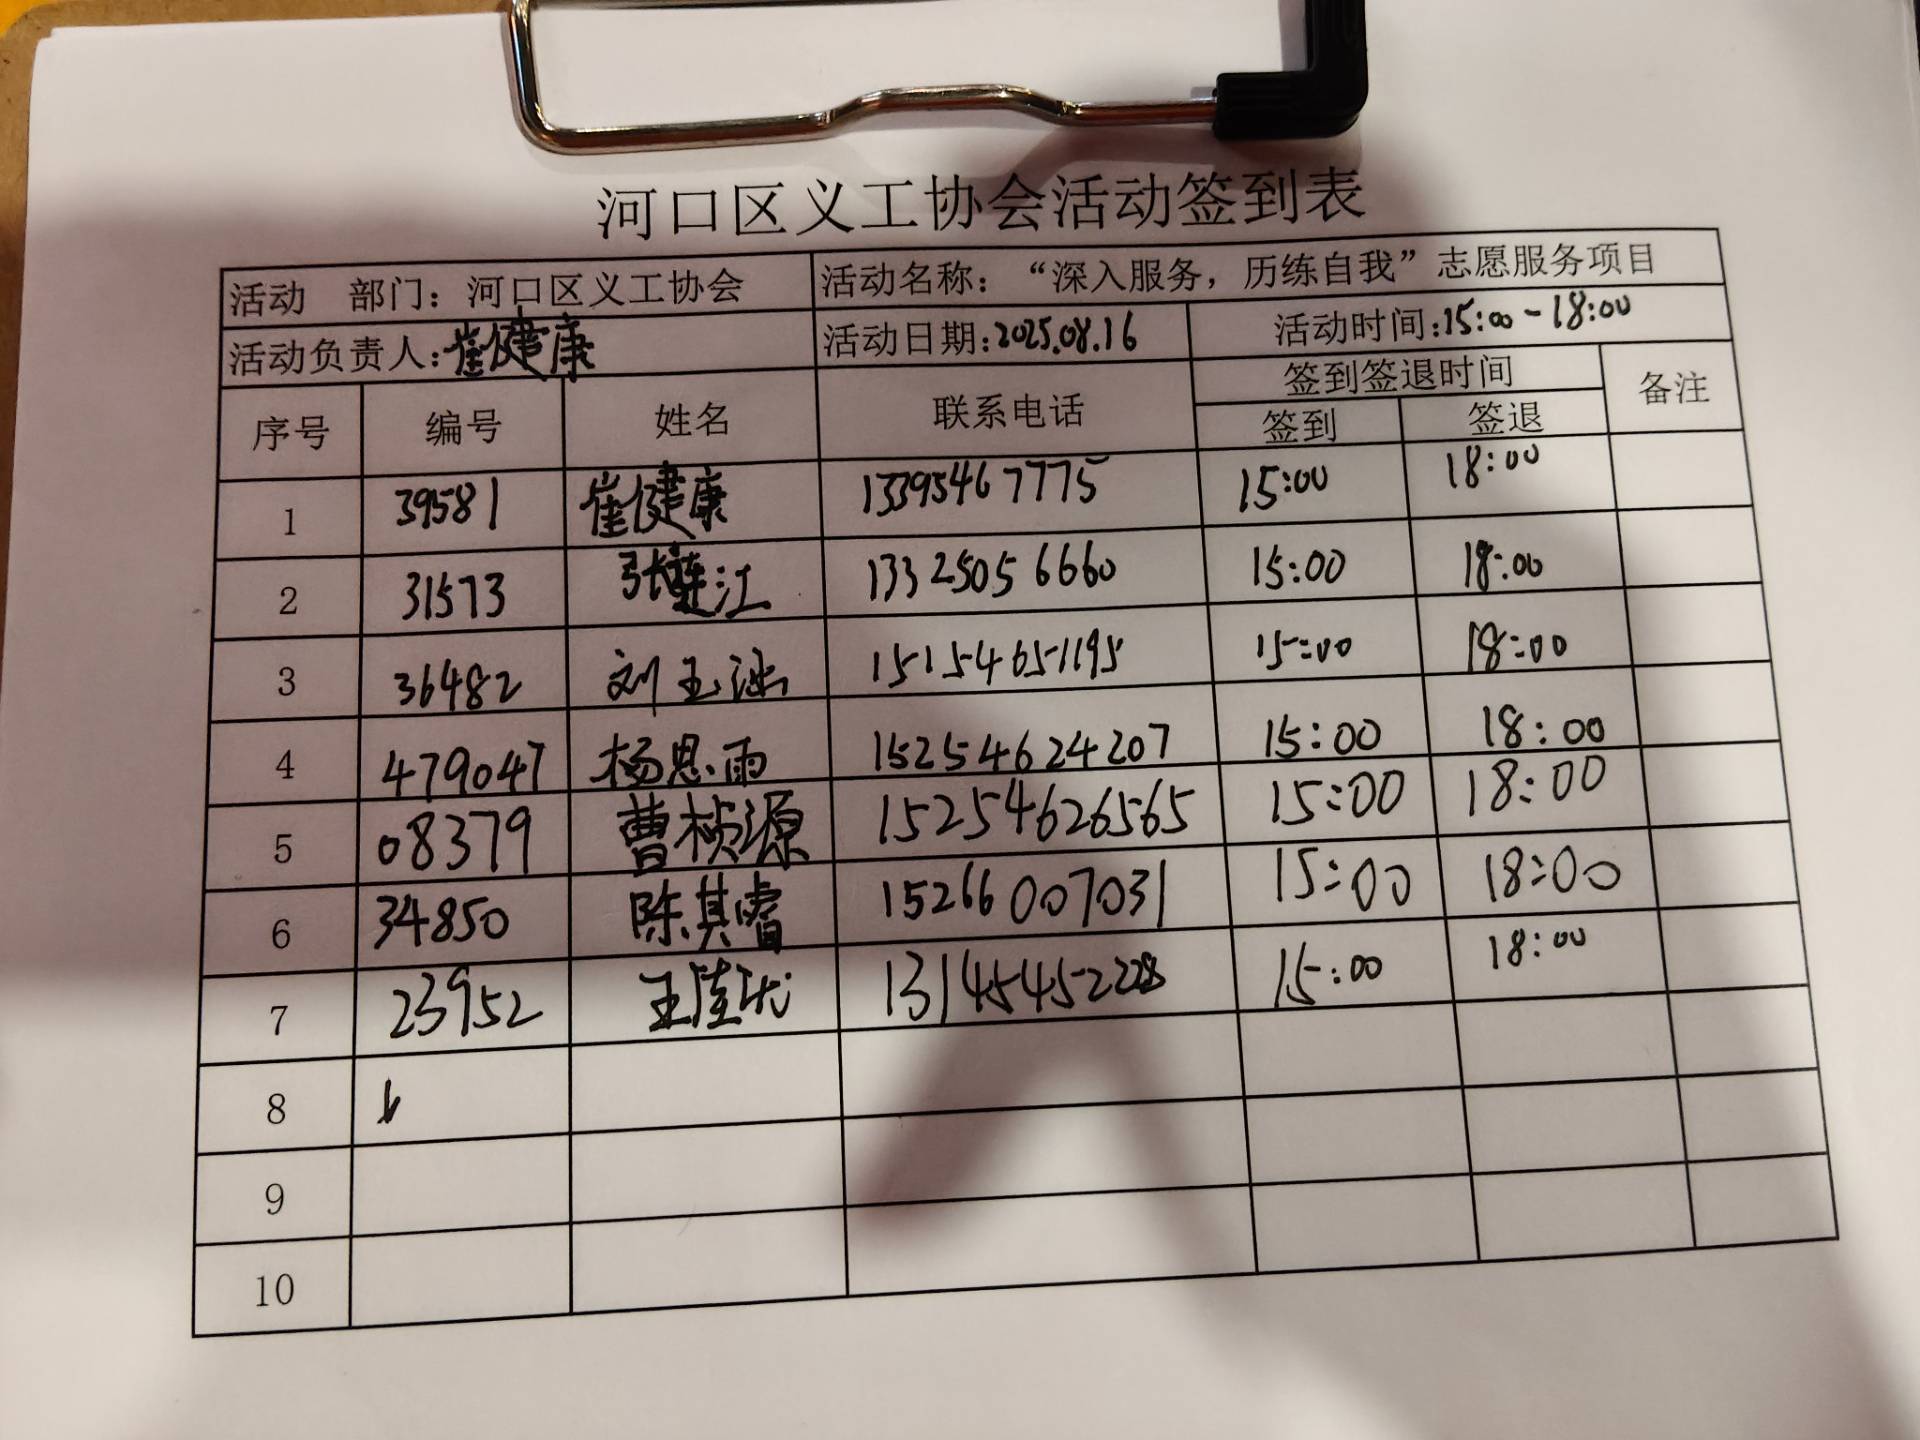 河口区义工协会活动签到表
活动 部门：河口区义工协会 活动名称：“深入服务，历练自我”志愿服务项目
活动负责人：崔健康 活动日期：2025.08.16 活动时间：15:00-18:00
序号 编号 姓名 联系电话 签到签退时间 备注
签到 签退
1 39581 崔健康 13395467775 15:00 18:00
2 31573 张莲江 13325056660 15:00 18:00
3 36482 刘玉 15154651195 15:00 18:00
4 479047 杨思雨 15254624207 15:00 18:00
5 08379 曹桢源 15254626565 15:00 18:00
6 34850 陈其睿 15266007031 15:00 18:00
7 23952 王佳 13145452228 15:00 18:00
8
9
10